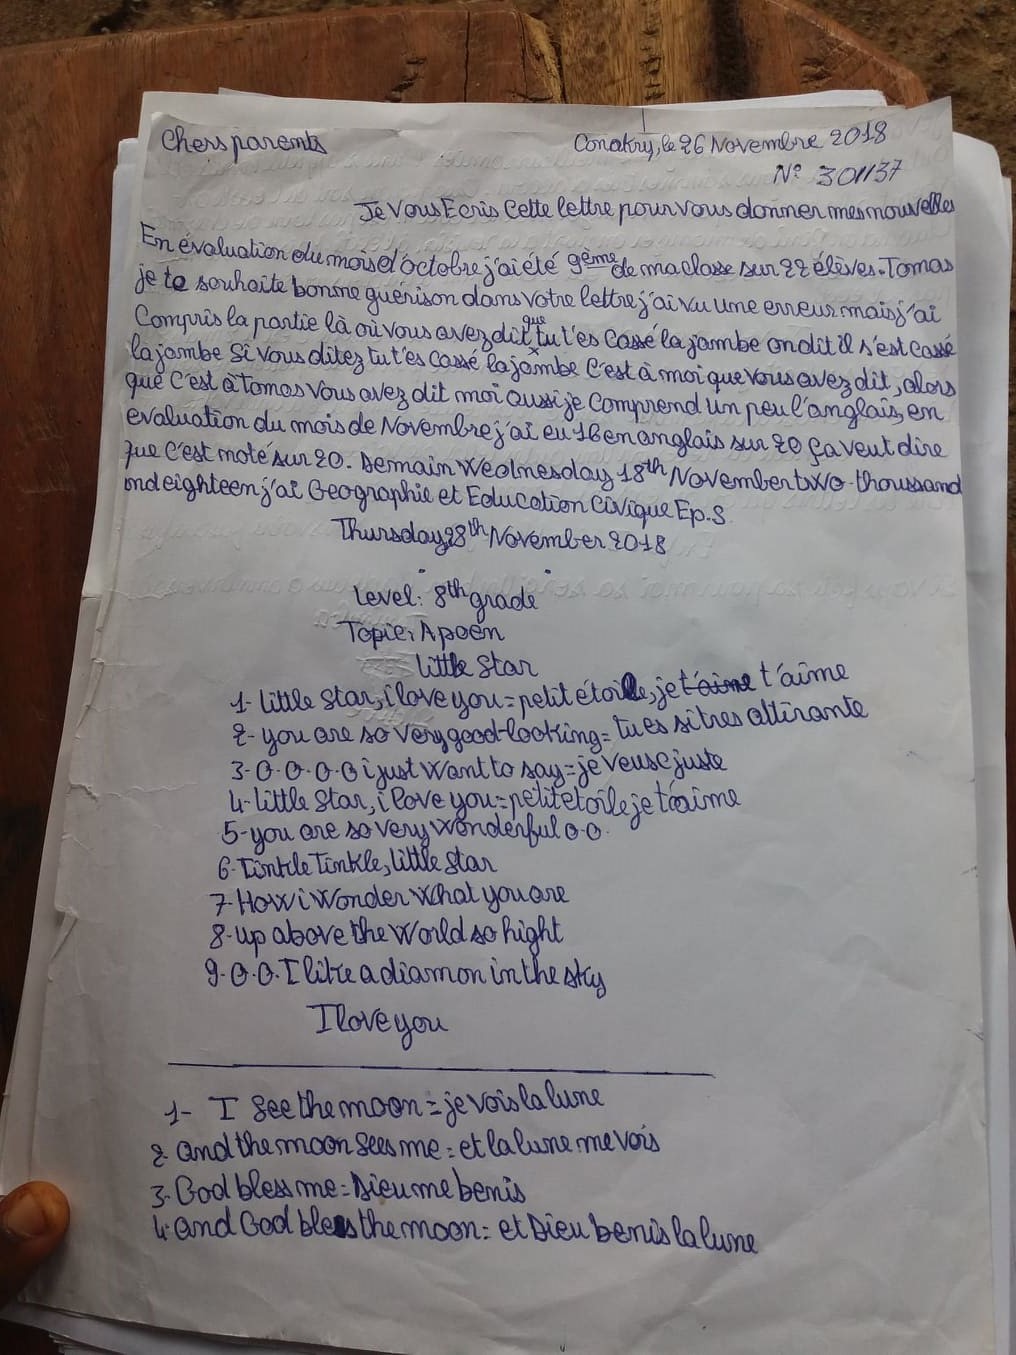 Chers parents
Conakry, le 26 Novembre 2018
N° 301137
Je Vous Ecris Cette lettre pour vous donner mes nouvelles
En évaluation du mois d'octobre j'ai été 9ème de ma classe sur 22 élèves. Tomas
je te souhaite bonne guérison dans votre lettre j'ai vu une erreur mais j'ai
Compris la partie là où vous avez dit que tu t'es cassé la jambe on dit il s'est cassé
la jambe Si vous ditez tu t'es cassé la jambe c'est à moi que vous avez dit, alors
que c'est à Tomas vous avez dit moi aussi je Comprend un peu l'anglais, en
evaluation du mois de Novembre j'ai eu 16 en anglais sur 20 ça veut dire
que c'est noté sur 20. Demain Wednesday 18th November two-thoussand
and eighteen j'ai Geographie et Education Civique Ep.S
Thursday, 28th November 2018
Level: 8th grade
Topic: A poèn
Little Star
1- Little star, i love you = petit étoile, je t'aime t'aime
2- you are so very good-looking = tu es si tres attirante
3- O.O.O.O i just want to say = je veuse juste
4- little star, i love you = petit etoile je t'aime
5- you are so very wonderful o.o.
6- Tinkle Tinkle, little star
7- How i wonder what you are
8- up above the world so hight
9- O.O. I like a diamon in the sky
I love you
1- I see the moon = je vois la lune
2- and the moon sees me = et la lune me vois
3- God bless me = Dieu me benis
4- and God bless the moon = et Dieu benis la lune